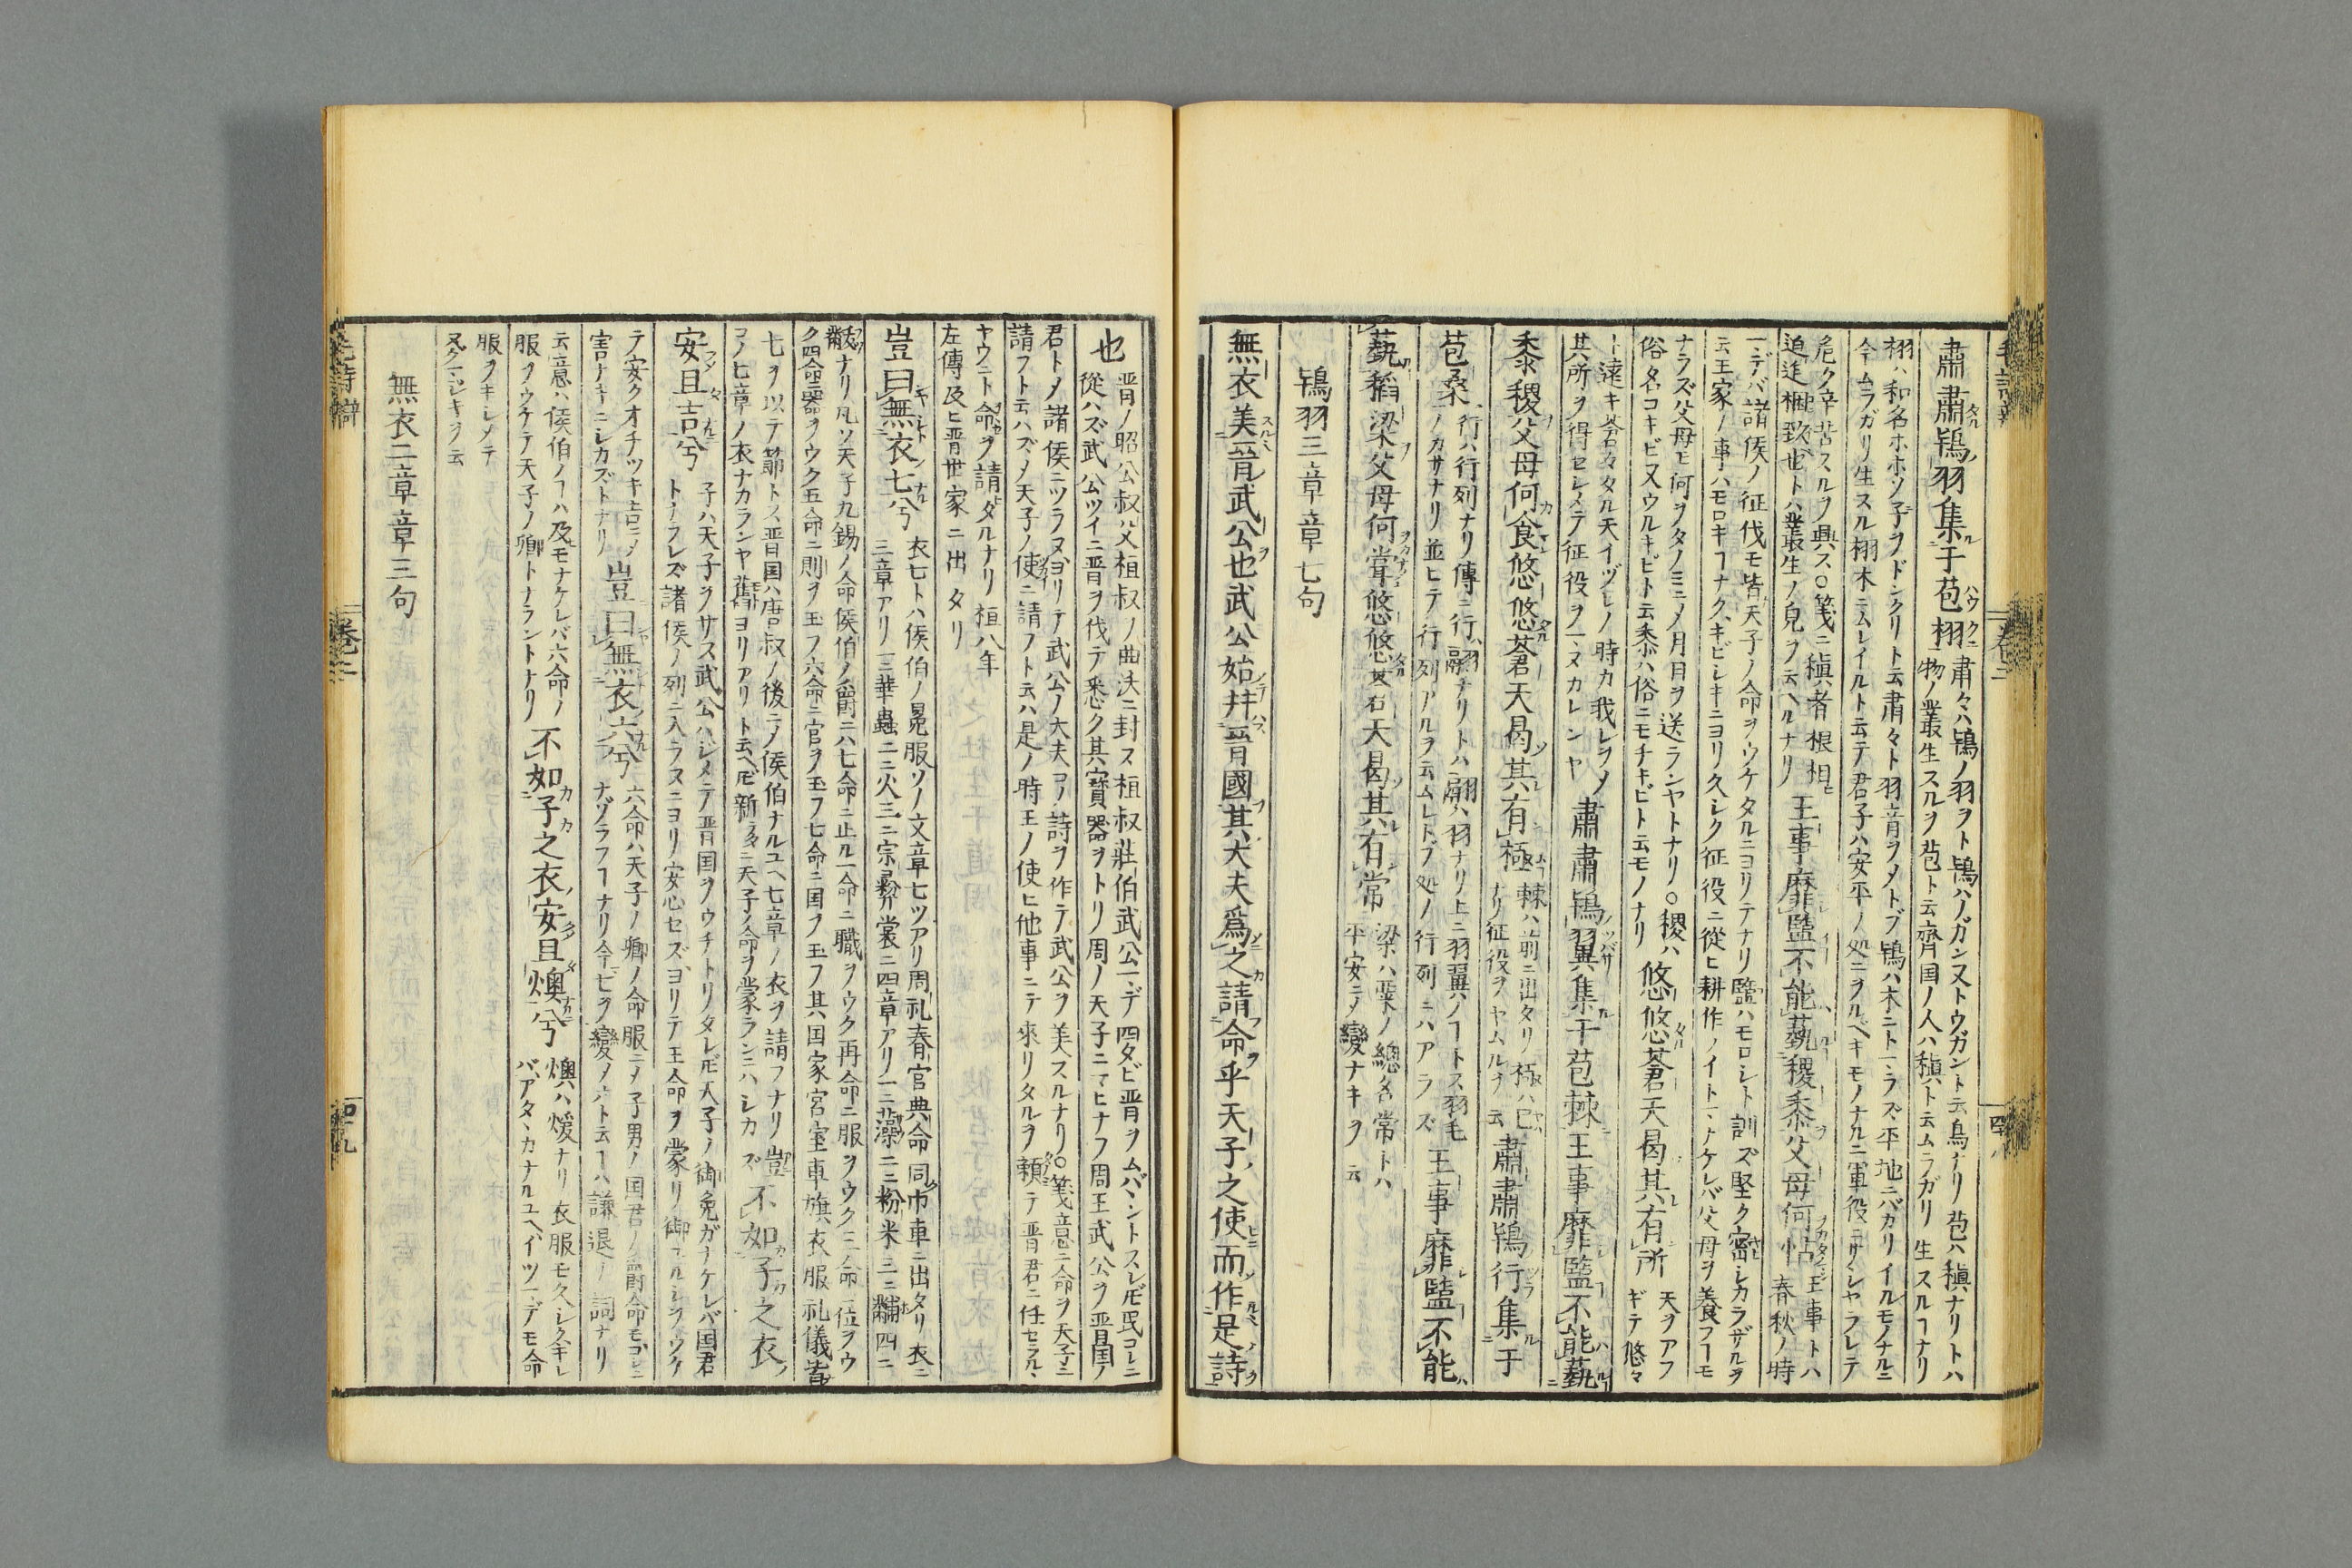 肅肅鴇羽集于苞栩 肅々ハ鴇ノ羽ヲト鴇ハノガン又トウガント云鳥ナリ苞ハ稹ナリトハ
物ノ叢生スルヲ苞ト云齊国ノ人ハ稹ト云ムラガリ生スルヿナリ
栩ハ和名ホホソ子ヲドングリト云肅々ト羽音ヲメトブ鴇ハ木ニトヽラズ平地ニバカリイルモノナルニ
今ムラガリ生スル栩木ニムレイルト云テ君子ハ安平ノ処ニヲルベキモノナルニ軍役ニサシヤラレテ
危ク辛苦スルヲ興ス○箋ニ稹者根相
迫迮梱致也トハ叢生ノ皃ヲ云ヘルナリ 王事靡盬不能蓺稷黍父母何怙 王事トハ
春秋ノ時
一デバ諸侯ノ征伐モ皆天子ノ命ヲウケタルニヨリテナリ盬ハモロシト訓ズ堅ク密シカラザルヲ
云王家ノ事ハモロキヿナクキビシキニヨリ久シク征役ニ從ヒ耕作ノイトマナケレバ父母ヲ養フヿモ
ナラズ父母モ何ヲタノミニメ月日ヲ送ランヤトナリ○稷ハ
俗名コキビ又ウルキビト云黍ハ俗ニモチキビト云モノナリ 悠悠蒼天曷其有所 天ヲアフ
ギテ悠々
ト遠キ蒼々タル天イヅレノ時カ我レヲメ
其所ヲ得セシメテ征役ヲマヌカレンヤ 肅肅鴇翼集于苞棘王事靡盬不能蓺
黍稷父母何食悠悠蒼天曷其有極 棘ハ前ニ出タリ極ハ已
ナリ征役ヲヤムルヲ云 肅肅鴇行集于
苞桑 行ハ行列ナリ傳ニ行ハ翮ナリトハ翮ハ羽ナリ上ニ羽翼ノヿトス羽毛
ノカサナリ並ヒテ行列アルヲ云ムレトブ処ノ行列ニハアラズ 王事靡盬不能
蓺稻梁父母何嘗悠悠蒼天曷其有常 梁ハ粟ノ總名常トハ
平安ニメ變ナキヲ云
鴇羽三章章七句
無衣美晉武公也武公始幷晉國其大夫爲之請命乎天子之使而作是詩
也 晋ノ昭公叔父桓叔ノ曲沃ニ封ス桓叔莊伯武公マデ四タビ晋ヲムバヽントスレ𪜈民コレニ
從ハズ武公ツイニ晋ヲ伐テ悉ク其寳器ヲトリ周ノ天子ニマヒナフ周王武公ヲ晋国ノ
君トメ諸侯ニツラヌヨリテ武公ノ大夫コノ詩ヲ作テ武公ヲ美スルナリ○箋意ニ命ヲ天子ニ
請フト云ハズメ天子ノ使ニ請フト云ハ是ノ時王ノ使ヒ他事ニテ來リタルヲ頼テ晋君ニ任セラルヽ
ヤウニト命ヲ請タルナリ桓八年
左傳及ヒ晋世家ニ出タリ
豈曰無衣七兮 衣七トハ侯伯ノ冕服ソノ文章七ツアリ周礼春官典命同巾車ニ出タリ衣ニ
三章アリ一ニ華蟲二ニ火三ニ宗彛裳ニ四章アリ一ニ藻二ニ粉米三ニ黼四ニ
黻ナリ凡ソ天子九錫ノ命侯伯ノ爵ニハ七命ニ止ル一命ニ職ヲウク再命ニ服ヲウク三命ニ位ヲウ
ク四命ニ器ヲウク五命ニ則ヲ玉フ六命ニ官ヲ玉フ七命ニ国ヲ玉フ其国家宮室車旗衣服礼儀皆
七ヲ以テ節トス晋国ハ唐叔ノ後ニメ侯伯ナルユヘ七章ノ衣ヲ請フナリ豈
コノ七章ノ衣ナカランヤ舊ヨリアリト云ヘ𪜈新タニ天子ノ命ヲ蒙ランニハシカズ 不如子之衣
安且吉兮 子ハ天子ヲサス武公ハジメテ晋国ヲウチトリタレ𪜈天子ノ御免ガナケレバ国君
トナラレズ諸侯ノ列ニ入ラヌニヨリ安心セズヨリテ王命ヲ蒙リ御ユルシヲウケ
テ安クオチツキ吉ニメ
害ナキニシカズトナリ 豈曰無衣六兮 六命ハ天子ノ卿ノ命服ニメ子男ノ国君ノ爵命モコレニ
ナゾラフヿナリ今七ヲ變メ六ト云ヿハ謙退ノ詞ナリ
云意ハ侯伯ノヿハ及モナケレバ六命ノ
服ヲウケテ天子ノ卿トナラントナリ 不如子之衣安且燠兮 燠ハ煖ナリ衣服モ久シクキレ
バアタヽカナルユヘイツマデモ命
服ヲキシメテ
久クマシキヲ云
無衣二章章三句